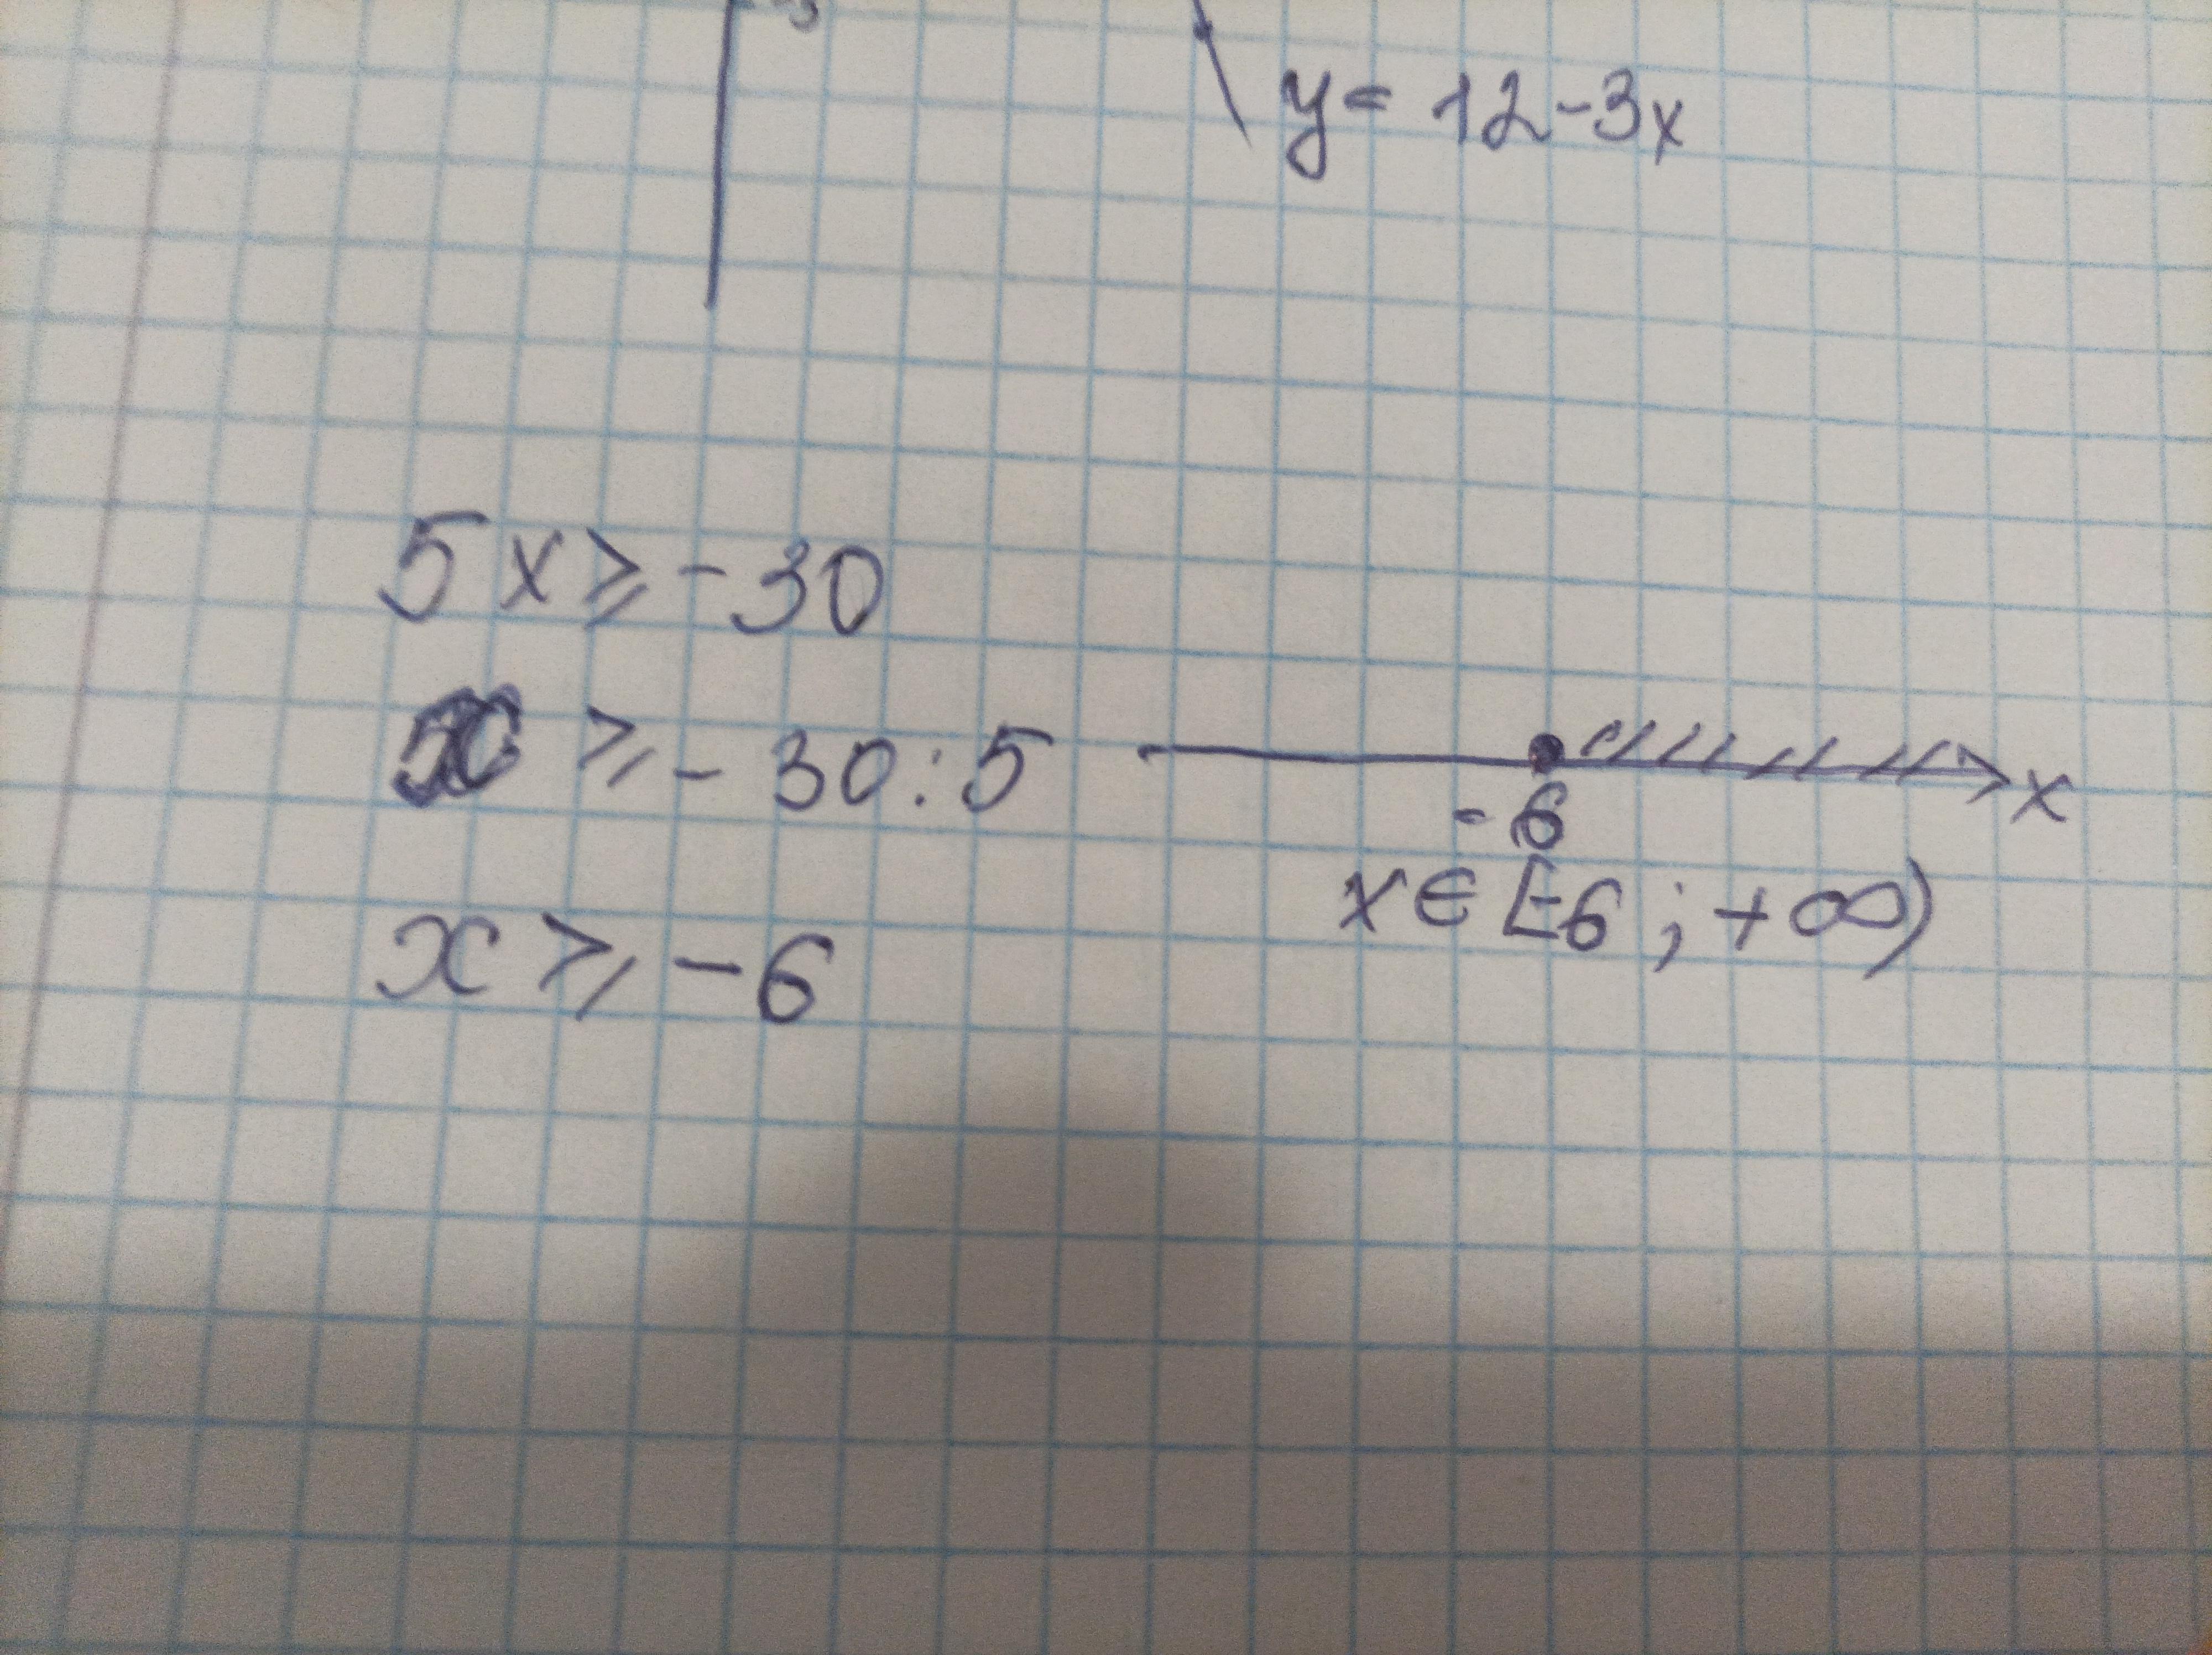 y = 12-3x
5x ⩾ -30
x ⩾ - 30:5
x
-6
x ∈ [-6 ; +∞)
x ⩾ -6